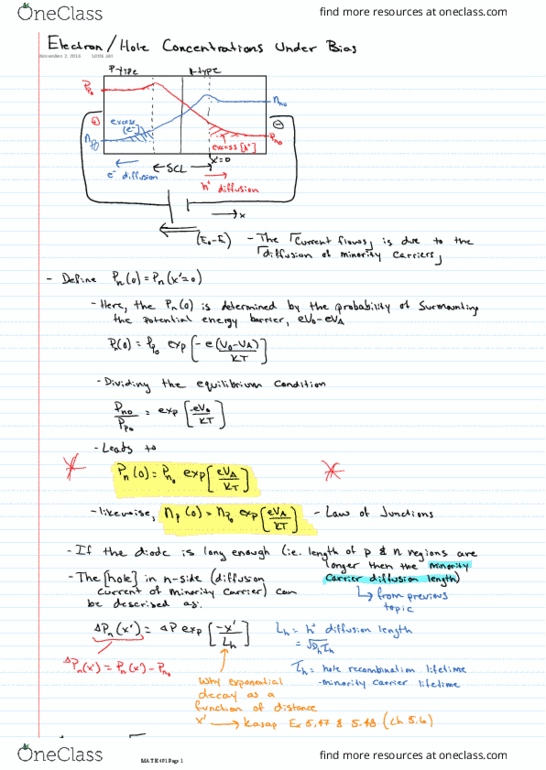 OneClass
find more resources at oneclass.com
Electron/Hole Concentrations Under Bias
November 2, 2016
P-type
n-type
Ppo
nno
⊕
⊖
excess [e-]
npo
Pno
excess [h+]
x'=0
← SCL →
e- diffusion
h+ diffusion
→ x
(E0-E)
- The "Current flows" is due to the
"diffusion of minority carriers"
- Define Pn(0) = Pn(x'=0)
- Here, the Pn(0) is determined by the probability of surmounting
the potential energy barrier, eV0-eVA
Pn(0) = Ppo exp[-e(V0-VA)/KT]
- Dividing the equilibrium condition
Pno/Ppo = exp[-eV0/KT]
- Leads to
Pn(0) = Pno exp[eVA/KT]
- likewise, np(0) = npo exp[eVA/KT] - Law of Junctions
- If the diode is long enough (i.e. length of p & n regions are
longer then the minority
carrier diffusion length)
↳ from previous
topic
- The [hole] in n-side (diffusion
current of minority carrier) can
be described as:
ΔPn(x') = ΔP exp[-x'/Lh]
Lh = h+ diffusion length
= √DhTh
ΔPn(x') = Pn(x') - Pno
Th = hole recombination lifetime
- minority carrier lifetime
Why exponential
decay as a
function of distance
x' → Kasap Ex 5.47 & 5.48 (ch 5.6)
OneClass
MATE 471 Page 1
find more resources at oneclass.com